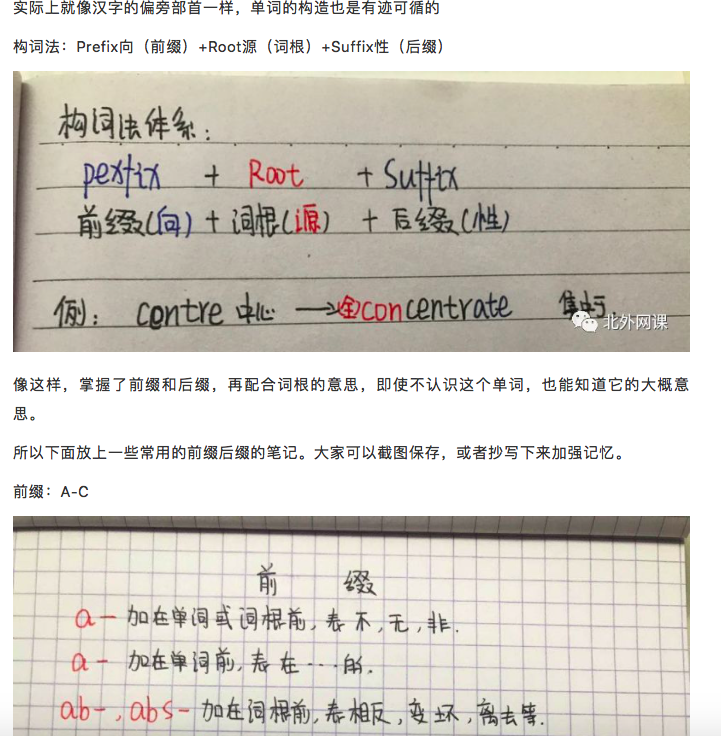 实际上就像汉字的偏旁部首一样，单词的构造也是有迹可循的
构词法：Prefix向（前缀）+Root源（词根）+Suffix性（后缀）
构词法体系：
pexfix + Root + Suffix
前缀(向) + 词根(源) + 后缀(性)
例： contre 中心 → 全concentrate 集中
北外网课
像这样，掌握了前缀和后缀，再配合词根的意思，即使不认识这个单词，也能知道它的大概意
思。
所以下面放上一些常用的前缀后缀的笔记。大家可以截图保存，或者抄写下来加强记忆。
前缀：A-C
前 缀
a- 加在单词或词根前，表不，无，非.
a- 加在单词前，表在…的.
ab-，abs- 加在词根前，表相反，变坏，离去等.